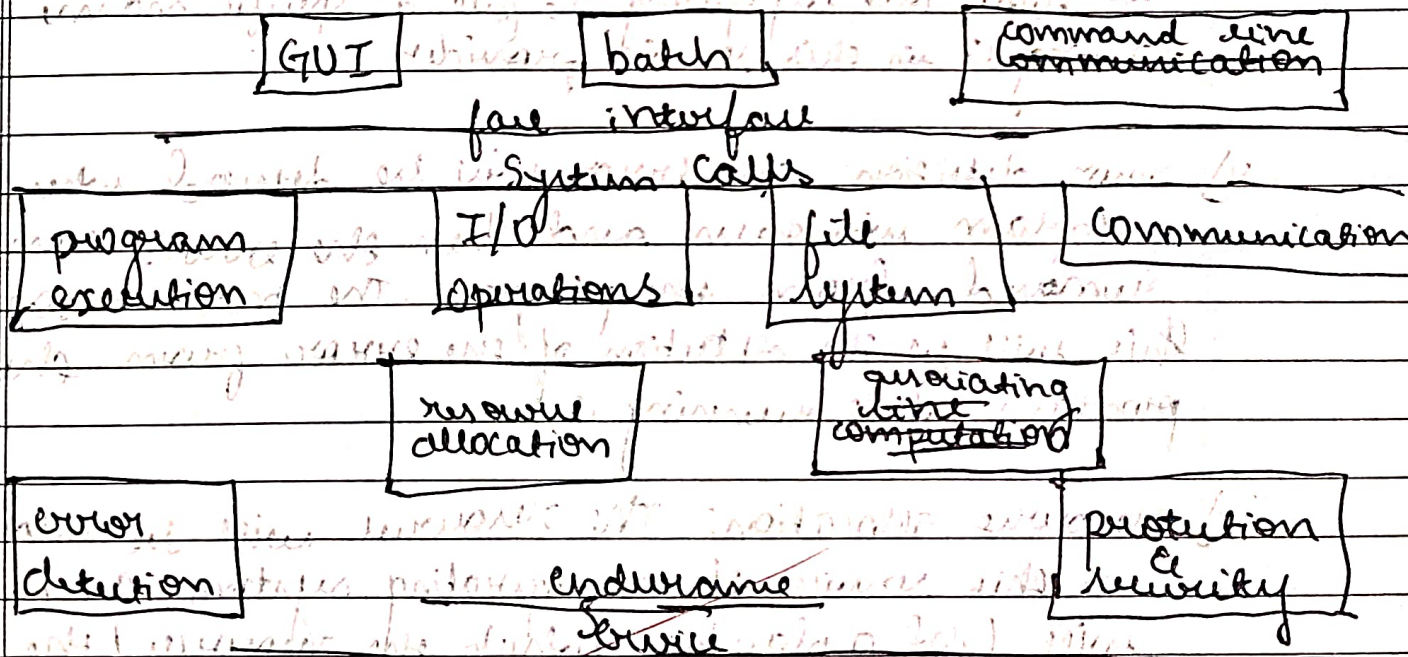 GUI
batch
command line
communication
face interface
System Calls
program
execution
I/O
operations
file
system
communication
resource
allocation
line
computation
error
detection
protection
&
security
endurance
service